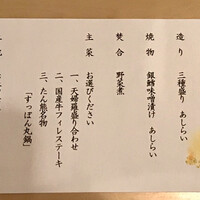 造り　三種盛り　あしらい
焼物　銀鱈味噌漬け　あしらい
焚合　野菜煮
主菜　お選びください
一、天婦羅盛り合わせ
二、国産牛フィレステーキ
三、たん熊名物
「すっぽん丸鍋」